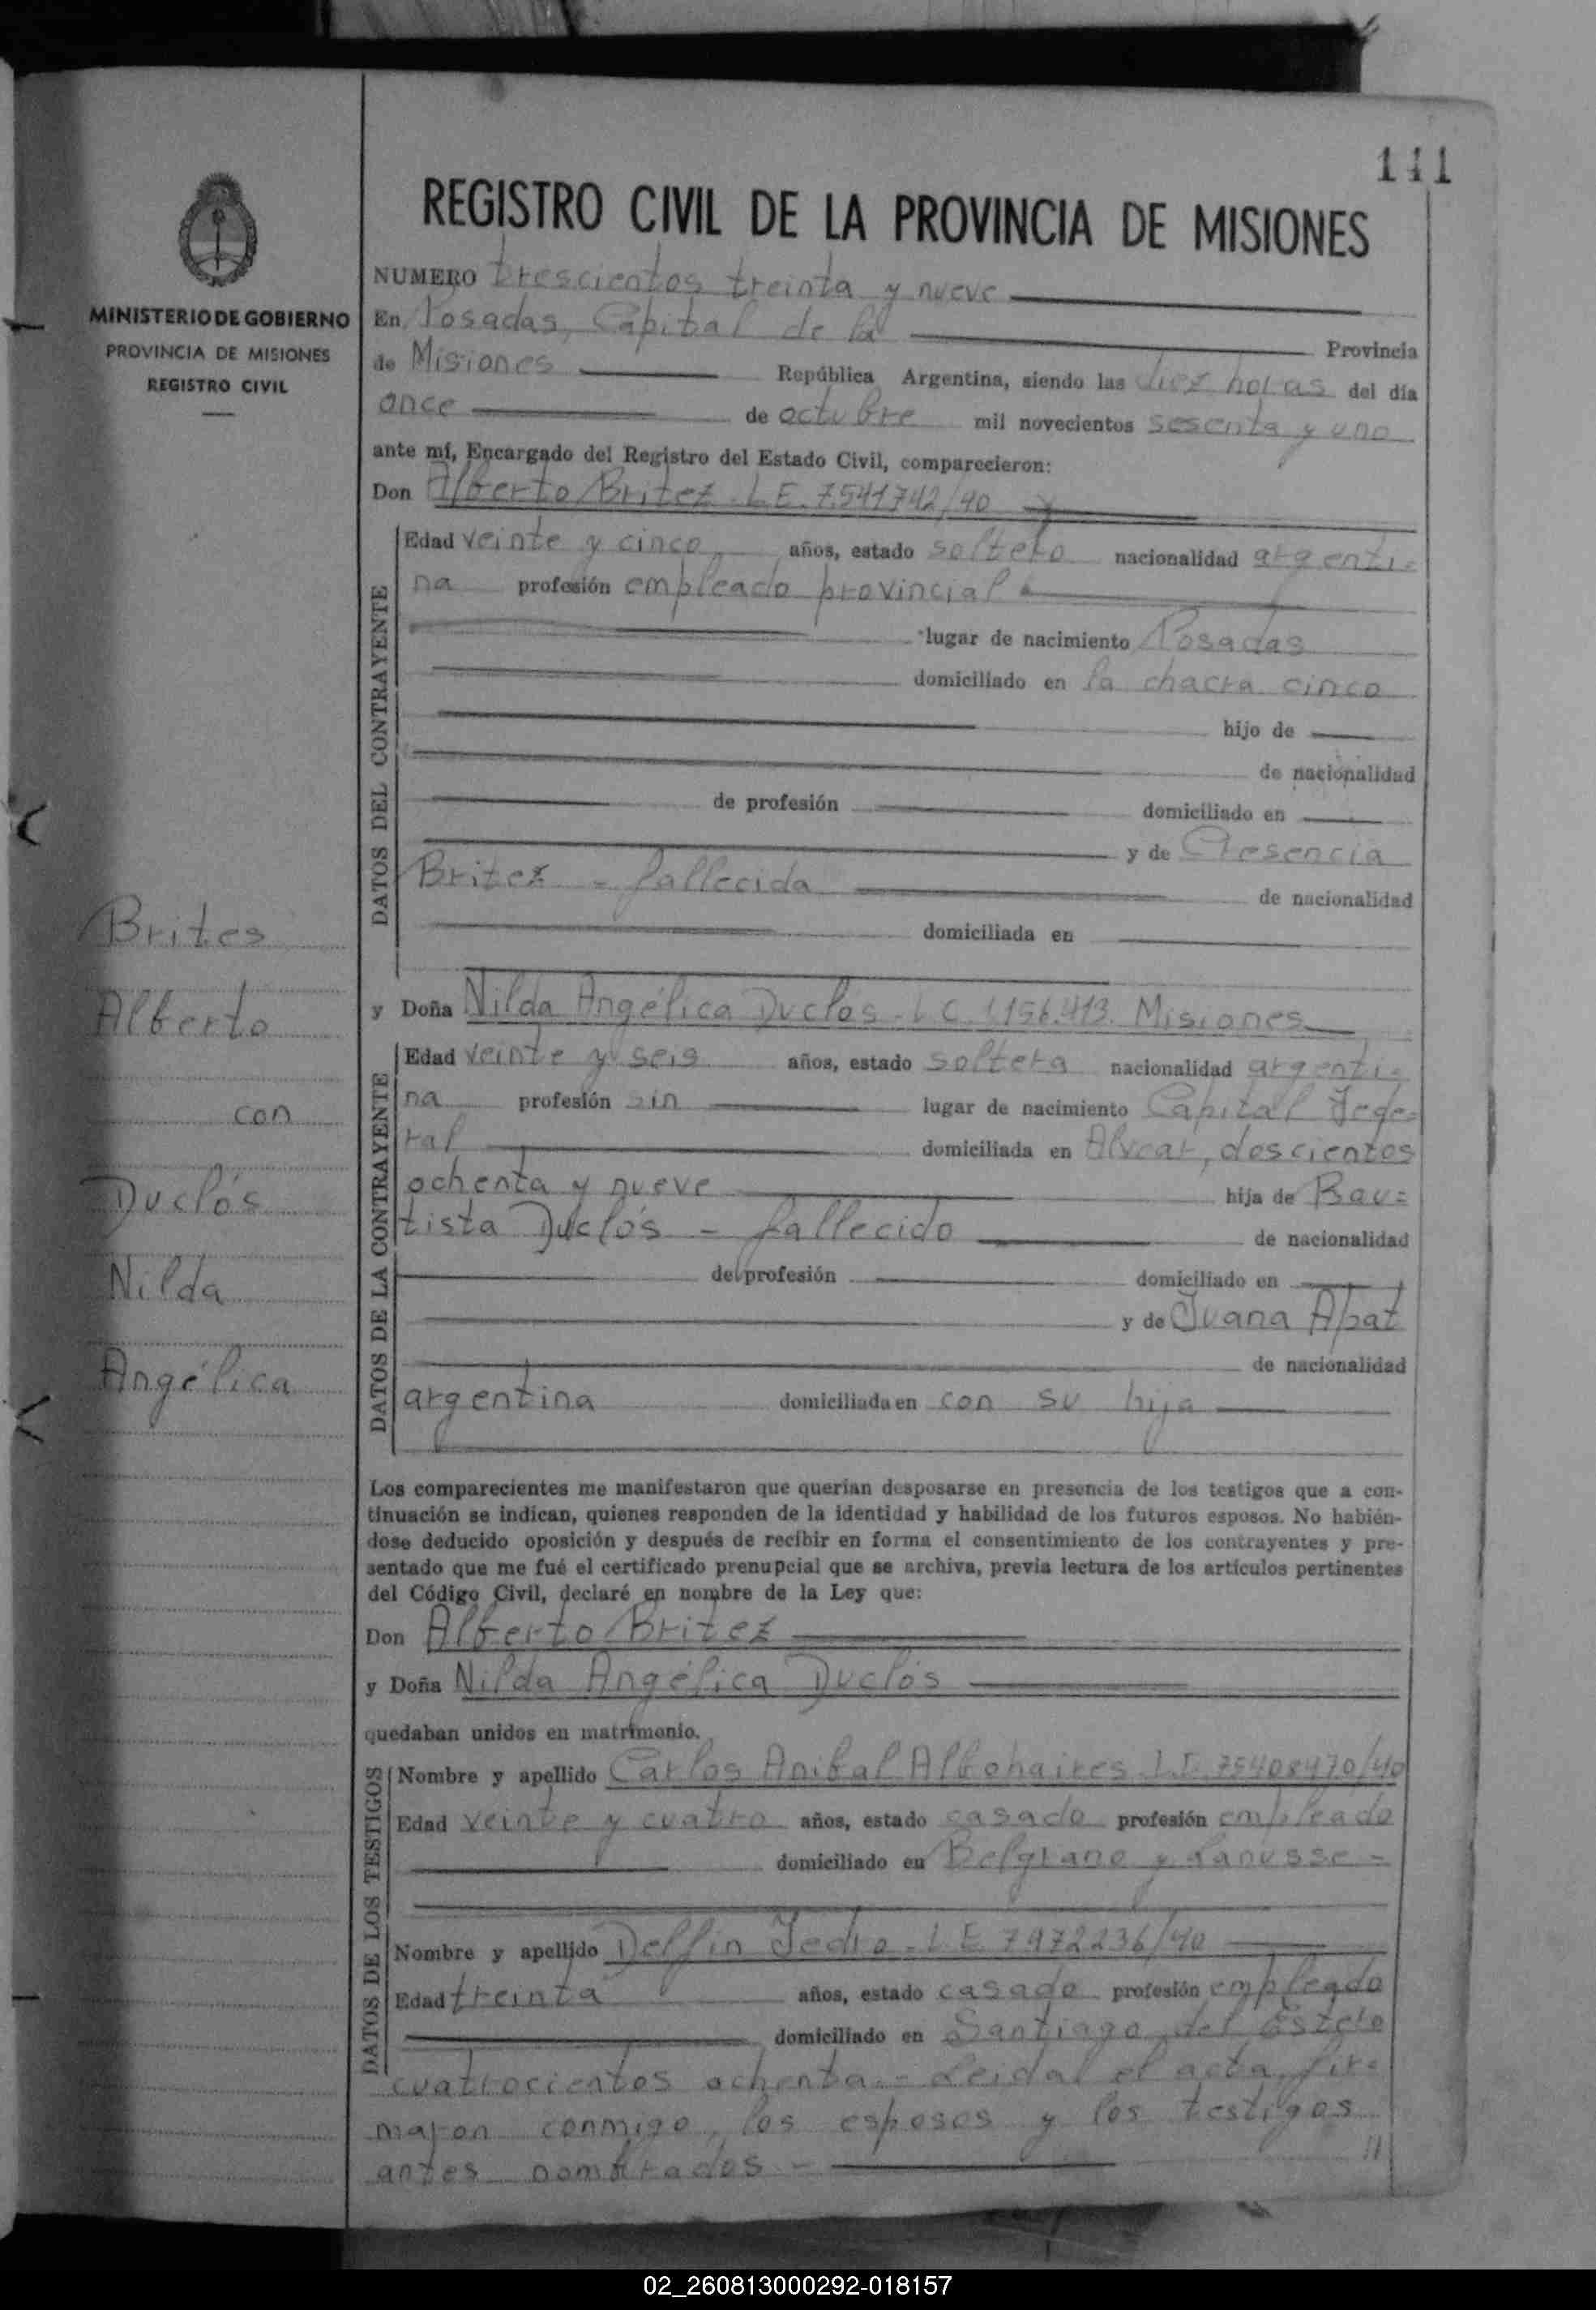 111
REGISTRO CIVIL DE LA PROVINCIA DE MISIONES
MINISTERIO DE GOBIERNO
PROVINCIA DE MISIONES
REGISTRO CIVIL
NUMERO trescientos treinta y nueve
En Posadas, Capital de la Provincia
de Misiones República Argentina, siendo las diez horas del día
once de octubre mil novecientos sesenta y uno
ante mí, Encargado del Registro del Estado Civil, comparecieron:
Don Alberto Britez - L.E. 7.541742/40
DATOS DEL CONTRAYENTE
Edad veinte y cinco años, estado soltero nacionalidad argenti-
na profesión empleado provincial
lugar de nacimiento Posadas
domiciliado en la chacra cinco
hijo de
de nacionalidad
de profesión domiciliado en
y de Cresencia
Britez - fallecida de nacionalidad
domiciliada en
Brites
Alberto
con
Duclós
Nilda
Angélica
y Doña Nilda Angélica Duclós - L.C. 1.156.413. Misiones
DATOS DE LA CONTRAYENTE
Edad veinte y seis años, estado soltera nacionalidad argenti-
na profesión sin lugar de nacimiento Capital Fede-
ral domiciliada en Alvear, doscientos
ochenta y nueve hija de Bau=
tista Duclós - fallecido de nacionalidad
de profesión domiciliado en
y de Juana Apat
de nacionalidad
argentina domiciliada en con su hija
Los comparecientes me manifestaron que querían desposarse en presencia de los testigos que a con-
tinuación se indican, quienes responden de la identidad y habilidad de los futuros esposos. No habién-
dose deducido oposición y después de recibir en forma el consentimiento de los contrayentes y pre-
sentado que me fué el certificado prenupcial que se archiva, previa lectura de los artículos pertinentes
del Código Civil, declaré en nombre de la Ley que:
Don Alberto Britez
y Doña Nilda Angélica Duclós
quedaban unidos en matrimonio.
DATOS DE LOS TESTIGOS
Nombre y apellido Carlos Anibal Albohaires L.E.
Edad veinte y cuatro años, estado casado profesión empleado
domiciliado en Belgrano y Lanusse -
Nombre y apellido Delfin Jedro - L E 7972236/40
Edad treinta años, estado casado profesión empleado
domiciliado en Santiago del Estero
cuatrocientos ochenta.- Leida el acta, fir=
maron conmigo, los esposos y los testigos
antes nombrados - //
02_260813000292-018157